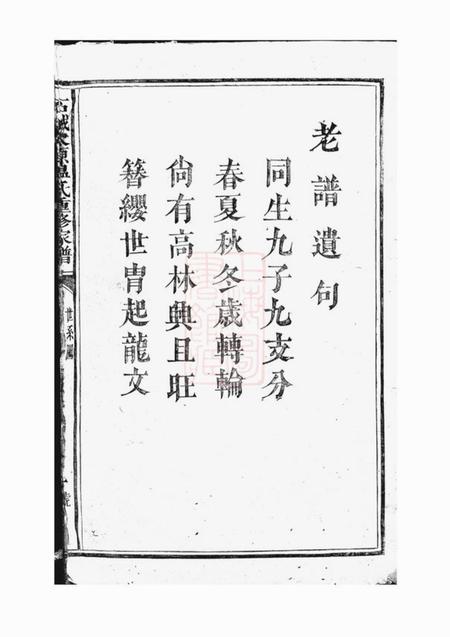 老譜遺句
同生九子九支分
春夏秋冬歲轉輪
尙有高林興且旺
簪纓世冑起龍文
溫氏重修家譜
世系圖